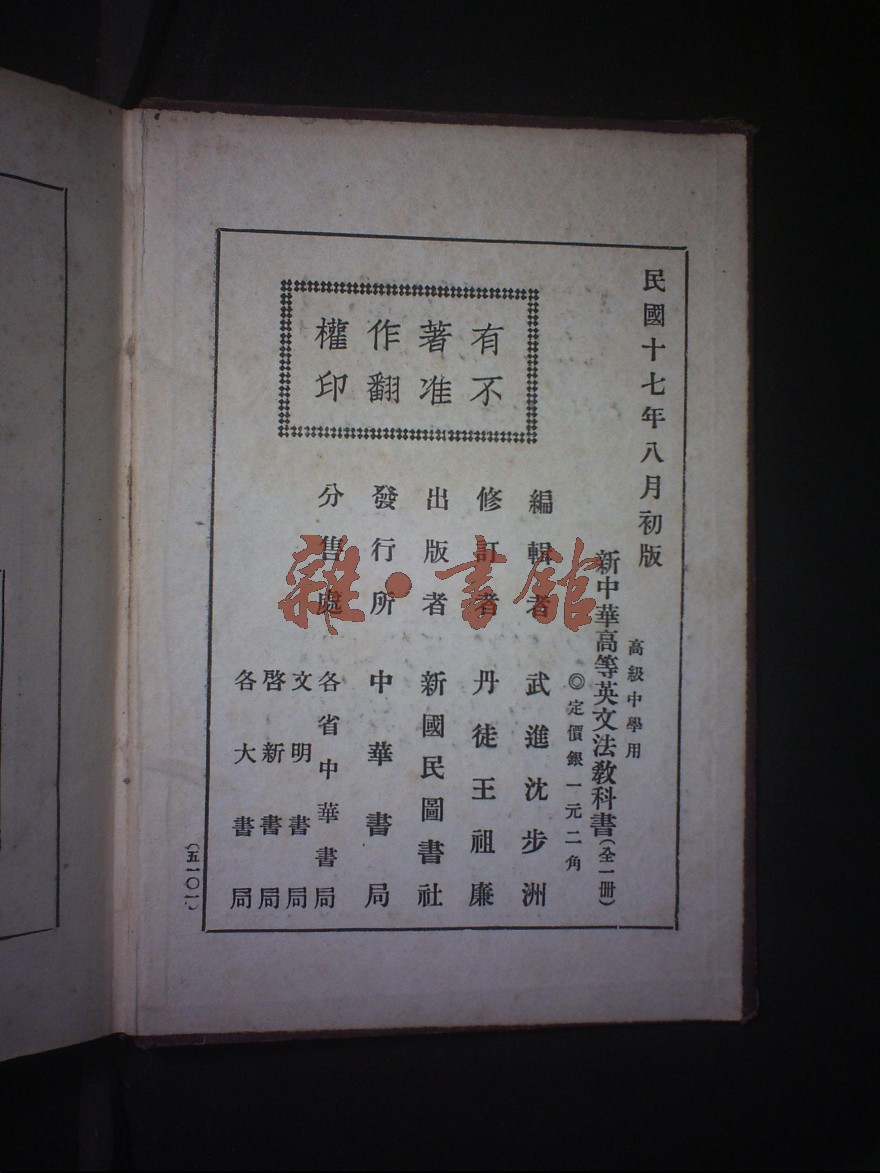 民國十七年八月初版
高級中學用
新中華高等英文法教科書(全一册)
◎定價銀一元二角
有著作權
不准翻印
編輯者 武進沈步洲
修訂者 丹徒王祖廉
出版者 新國民圖書社
發行所 中華書局
分售處 各省中華書局
文明書局
啓新書局
各大書局
(五一〇一)
雜·書館